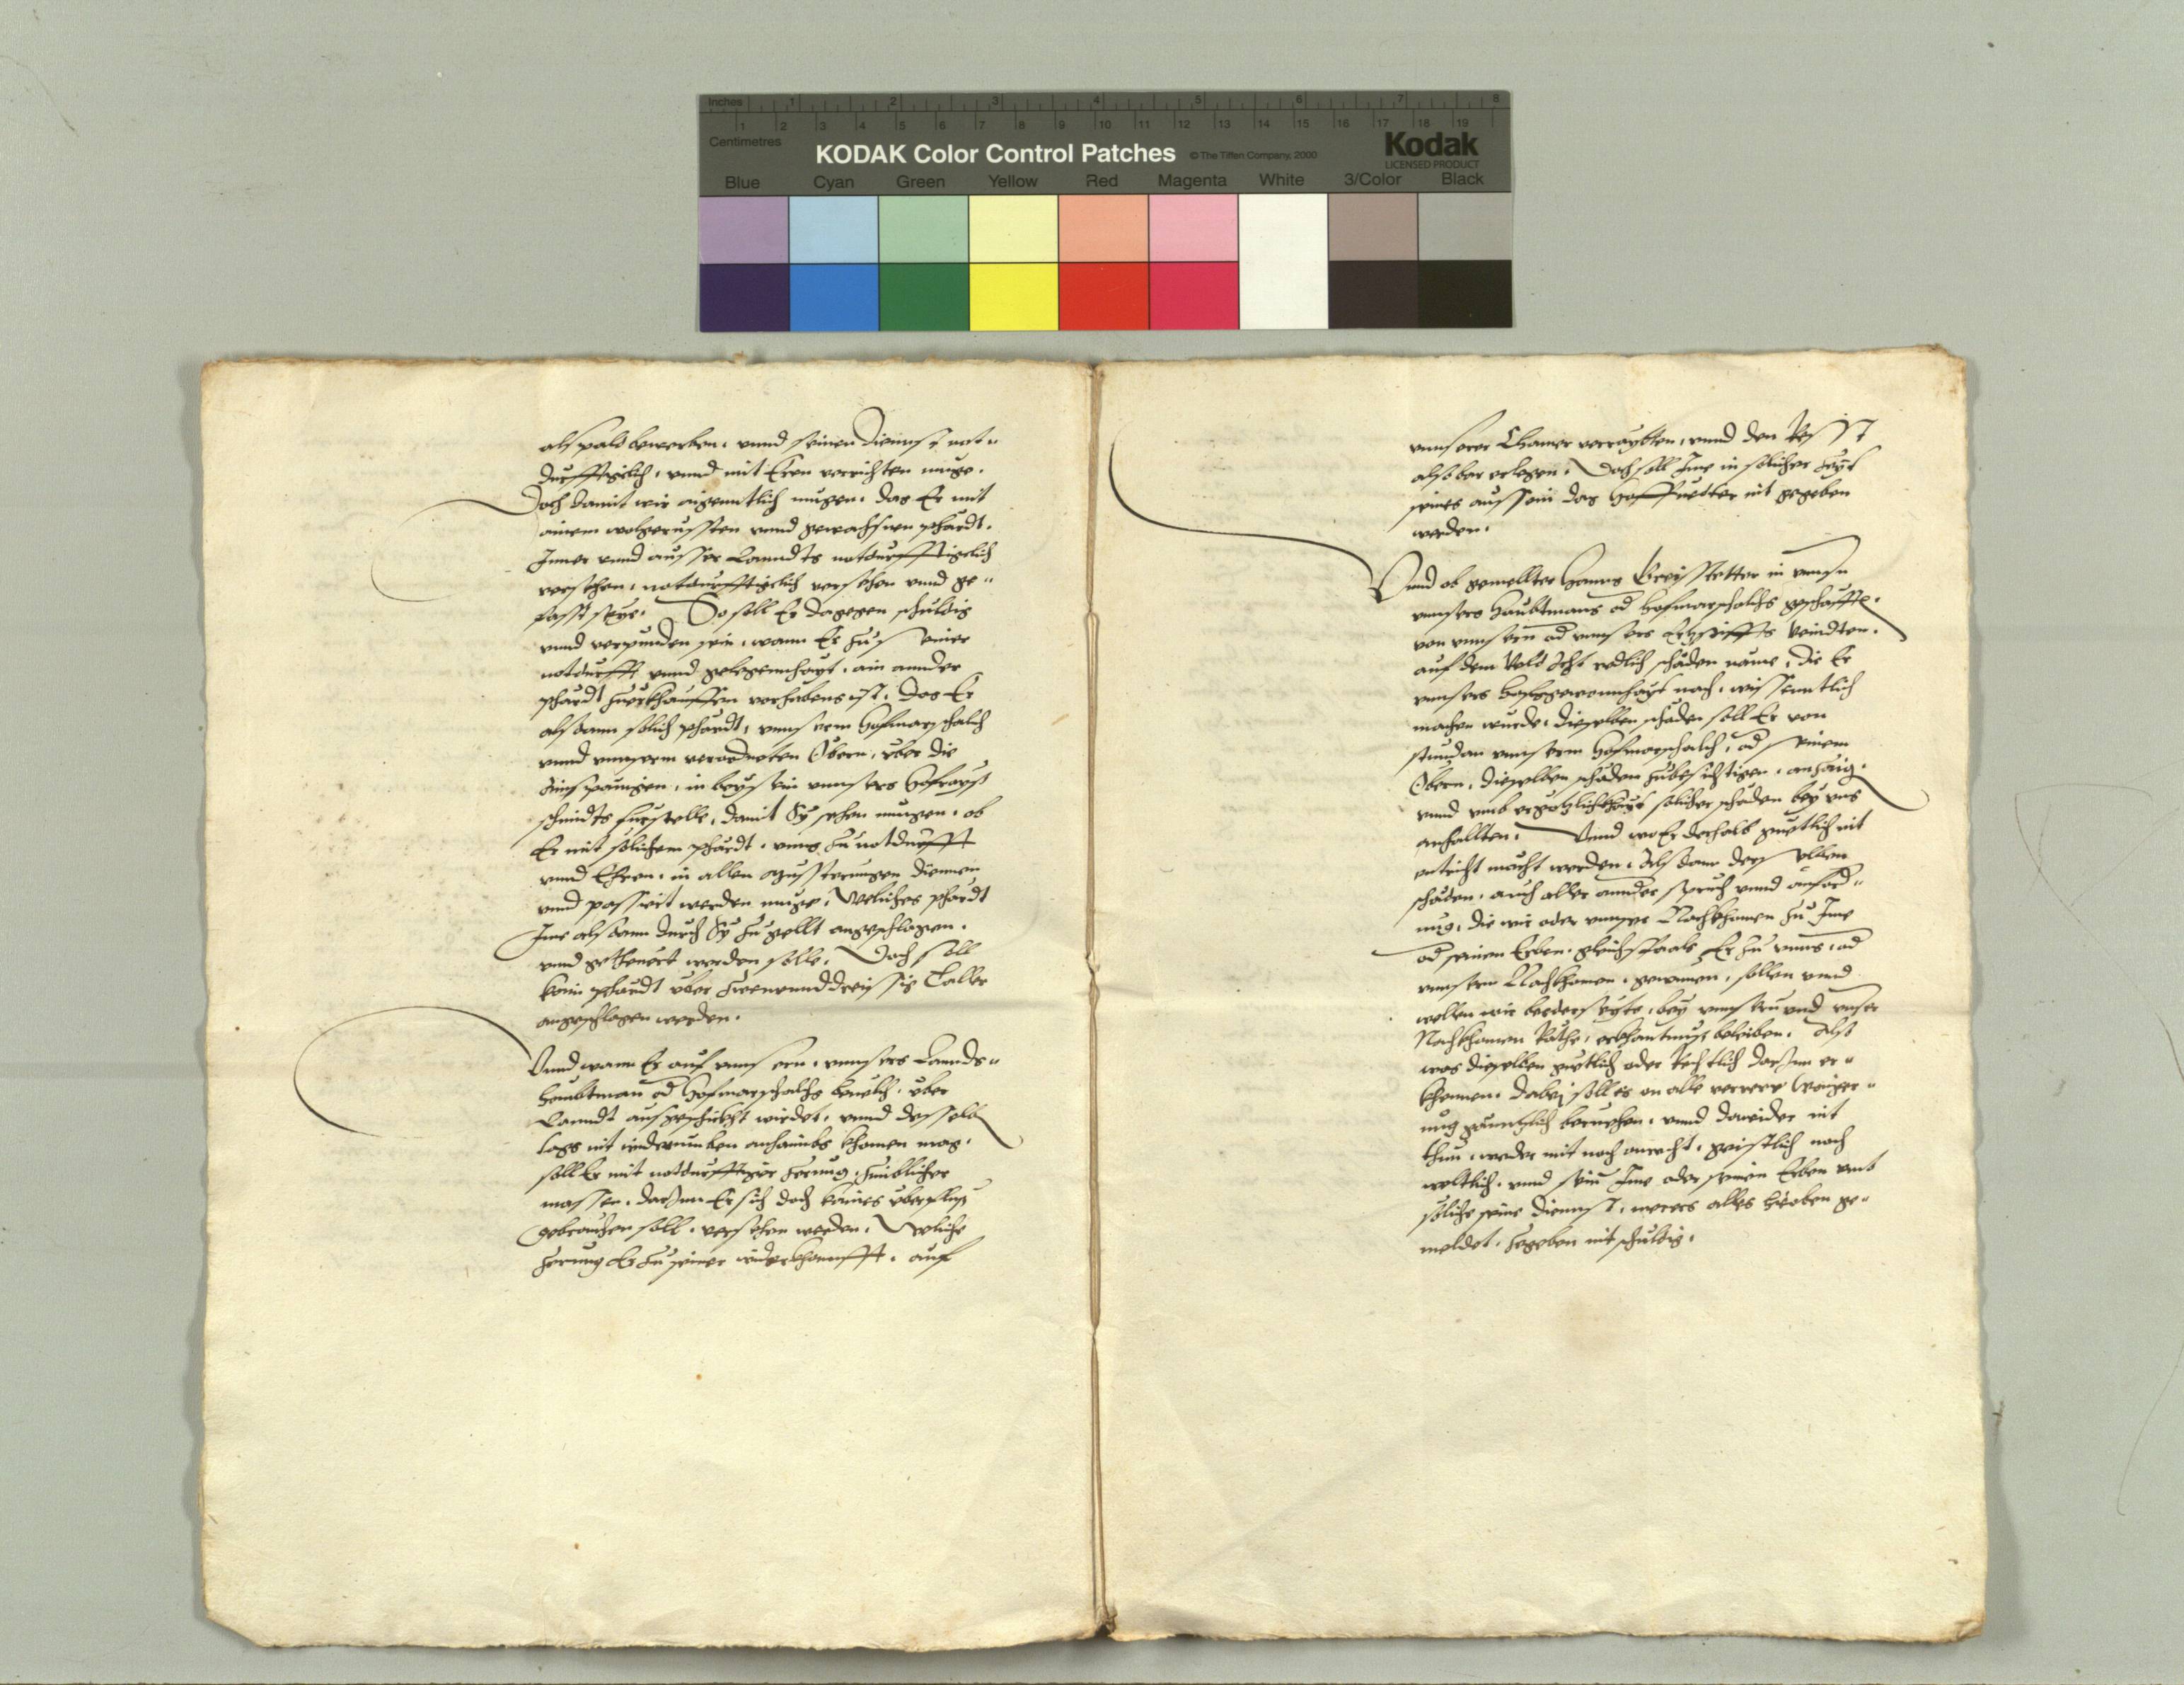 Inches 1 2 3 4 5 6 7 8
Centimetres 1 2 3 4 5 6 7 8 9 10 11 12 13 14 15 16 17 18 19
KODAK Color Control Patches © The Tiffen Company, 2000 Kodak
LICENSED PRODUCT
Blue Cyan Green Yellow Red Magenta White 3/Color Black
als pald bewerben, vnnd seinen Diennst not„
durfftigclich, vnnd mit Eren verrichten muge.
Doch damit wir aigenntlich mugen, das Er mit
ainem wolgerussten vnnd gewachsnen phärdt,
Inner vnnd ausser Lanndts notdurfftigclich
versehen, notdurfftigclich versehen vnnd ge„
fasst seye. So soll Er dagegen schuldig
vnnd verpunden sein, wann Er zu seiner
notdurfft vnnd gelegennhayt, ain annder
phärdt zuerkhauffen vorhabens ist, Das Er
alsdann solich phärdt, vnnserm Hofmarschalch
vnnd vnnserm verordneten Obern, vber die
Ainspänigen, in beysein vnnsers Hof
schmidts furstelle, damit Sy sehen mugen, ob
Er mit solichem phärdt, vnns zu notdurfft
vnnd Ehren, in allen Musterungen diennen
vnnd passiert werden muge, Weliches phärdt
Ime alsdann durch Sy zu gellt angeschlagen,
vnnd getheuert werden solle. Doch soll
kein phärdt vber zwenunddreissig Taller
angeschlagen werden.
Vnnd wann Er auf vnnsern, vnnsers Lannds„
haubtman od Hofmarschalchs beuelch, vber
Lanndt ausgeschickht wirdet, vnnd desselb
tags nit widerumben anhaimbs khomen mag,
soll Er mit notdurfftiger zerung, zimblicher
massen, darJnn Er sich doch keines vberfluß
gebrauchen soll, versehen werden. Weliche
zerung Er zu seiner widerkhonfft, auf
vnnserer Chamer verraytten, vnnd den Resst
also bar erlegen. Doch soll Ime in solicher Zeyt
seines aussein das Hoffuetter nit gegeben
werden.
Vnnd ob gemellter Hanns in vnnsern
vnnsers Haubtmans od Hofmarschalchs geschafften,
von vnnsern od vnnsers Ertzstiffts Veindten,
auf dem Veld redlich schäden näme, die Er
vnnsers Hofsgewonnhayt nach, wissenntlich
machen wurde, dieselben schäden soll Er von
stundan vnnserm Hofmarschalch, od seinem
Obern, dieselben schäden zubesichtigen, anzaig.
vnnd vmb ergotzlichkhayt solicher schäden bey vns
anhallten. Vnnd wo Er deshalb guetlich nit
entricht möcht werden, Alsdann derselben
schäden, auch aller annder Spruch vnnd anford„
nug, die wir oder vnnser Nachkhomen zu Ime
od seinen Erben, gleichsfaals Er zu vnns, od
vnnsern Nachkhomen, gewunnen, sollen vnnd
wellen wir bederseyts, bey vnnsern vnd vnser
Nachkhomen Räthe, erkhantnuss beleiben. Also
was dieselben guetlich oder Rechtlich darJnn er„
khennen, dabej soll es on alle verrere waiger„
nug gänntzlich beruehen, vnnd dawider nit
thun, weder mit noch onrecht, geistlich noch
weltlich, vnnd sein Ime oder seinen Erben vmb
soliche seine Diennst, merers alles hieoben ge„
meldet, zegeben nit schuldig.